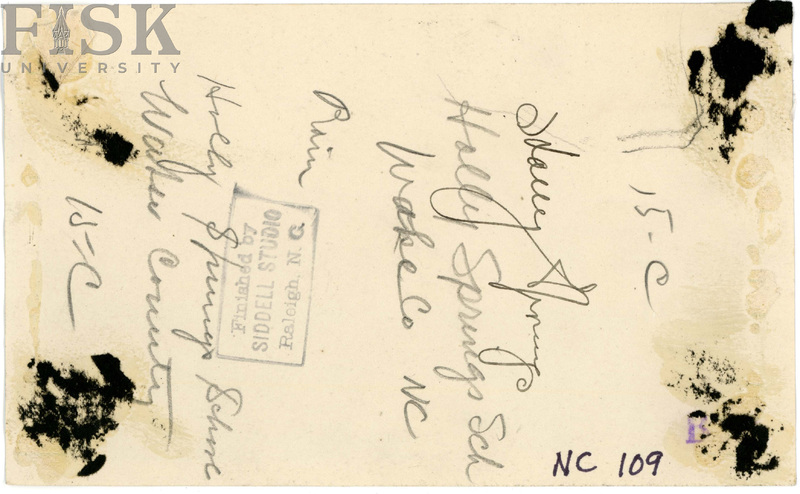 FISK
UNIVERSITY
15-C
Holly Springs
Holly Springs Sch
Wake Co NC
Rain
Finished by
SIDDELL STUDIO
Raleigh, N. C.
Holly Springs School
Wake County
15-C
NC 109